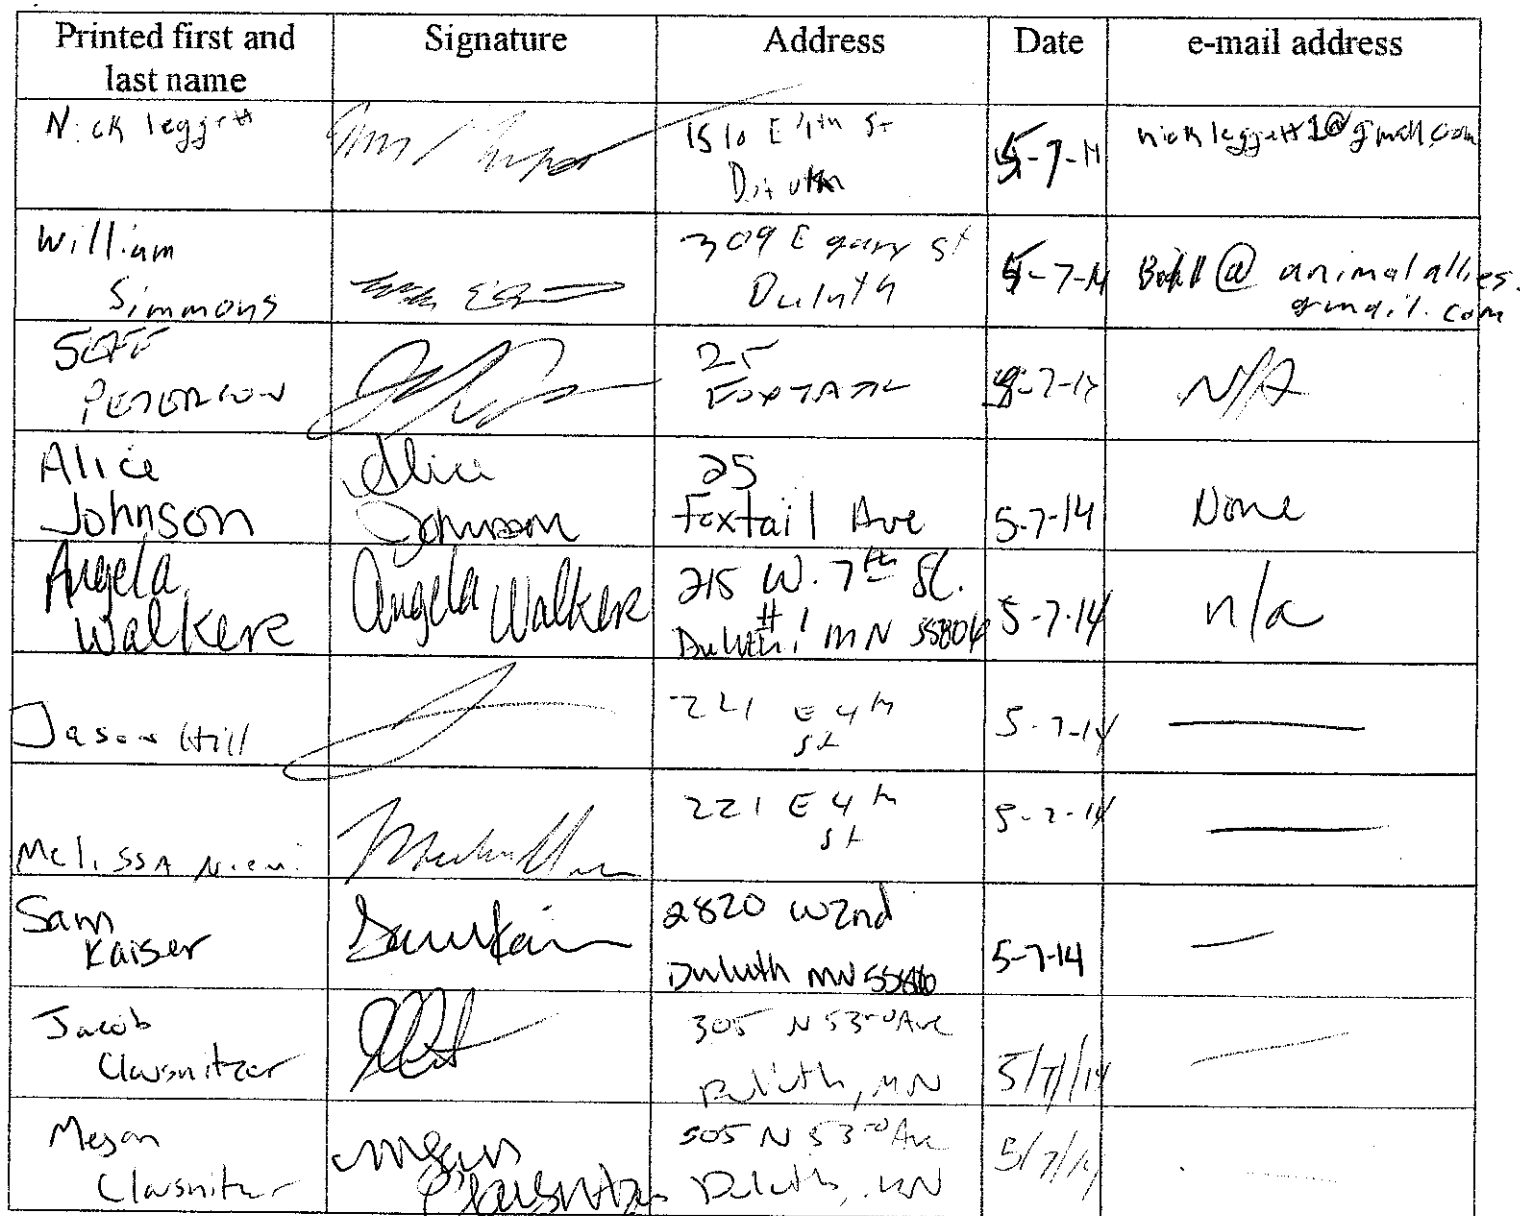 Printed first and last name | Signature | Address | Date | e-mail address
Nick leggett | | 1510 E 4th St Duluth | 5-7-14 | nickleggett1@gmail.com
William Simmons | | 309 E gary st Duluth | 5-7-14 | @ animalallies. gmail.com
JEFF PETERSON | | 25 FOXTAIL | 5-7-14 | N/A
Alice Johnson | Alice Johnson | 25 Foxtail Ave | 5-7-14 | None
Angela Walkere | Angela Walkere | 215 W. 7th St. #1 Duluth, MN 55806 | 5-7-14 | n/a
Jason Hill | | 221 E 4th st | 5-7-14 | —
Melissa Niemi | | 221 E 4th st | 5-7-14 | —
Sam Kaiser | Sam Kai | 2820 W 2nd Duluth MN | 5-7-14 | —
Jacob Clausnitzer | | 305 N 53rd Ave Duluth, MN | 5/7/14 | —
Megan Clausnitzer | Megan Clausnitzer | 505 N 53rd Ave Duluth, MN | 5/7/14 | —